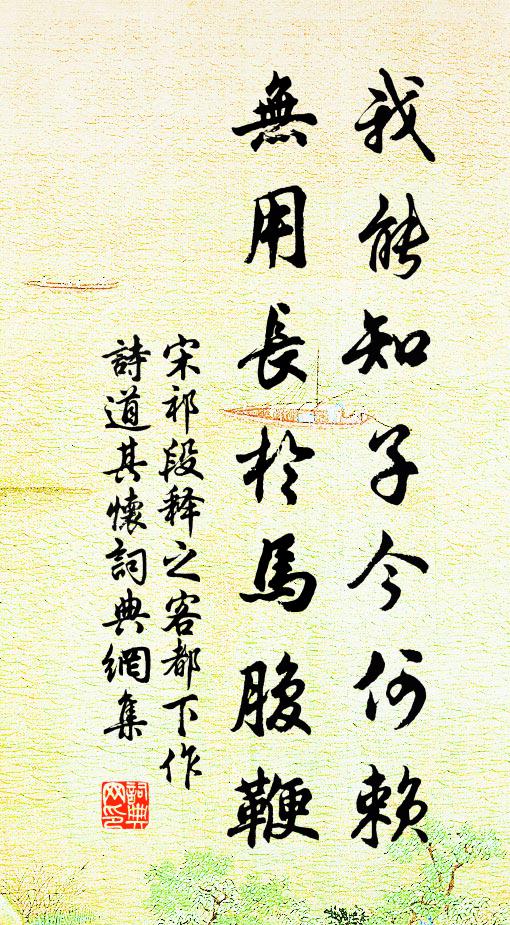 我能知子今何賴
無用長於馬腹鞭
宋祁段释之客都下作
詩道其懷詞典網集
詞典网印